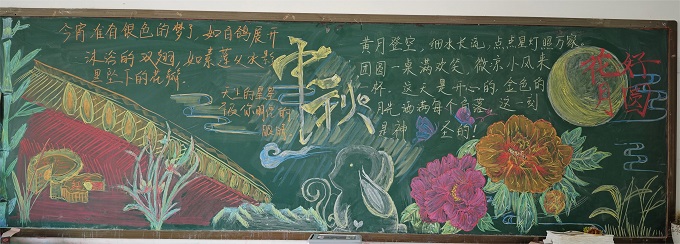 今宵准有银色的梦了,如白鸽展开
沐浴的双翅,如素莲从水影
里坠下的花瓣
天上的星星
中秋
黄月登空,细水长流,点点星灯照万家。
团圆一桌满欢笑,微凉小风来
一杯。这天是开心的,金色的
月光洒满每个角落,这一刻
是神圣的!
花好
月圆